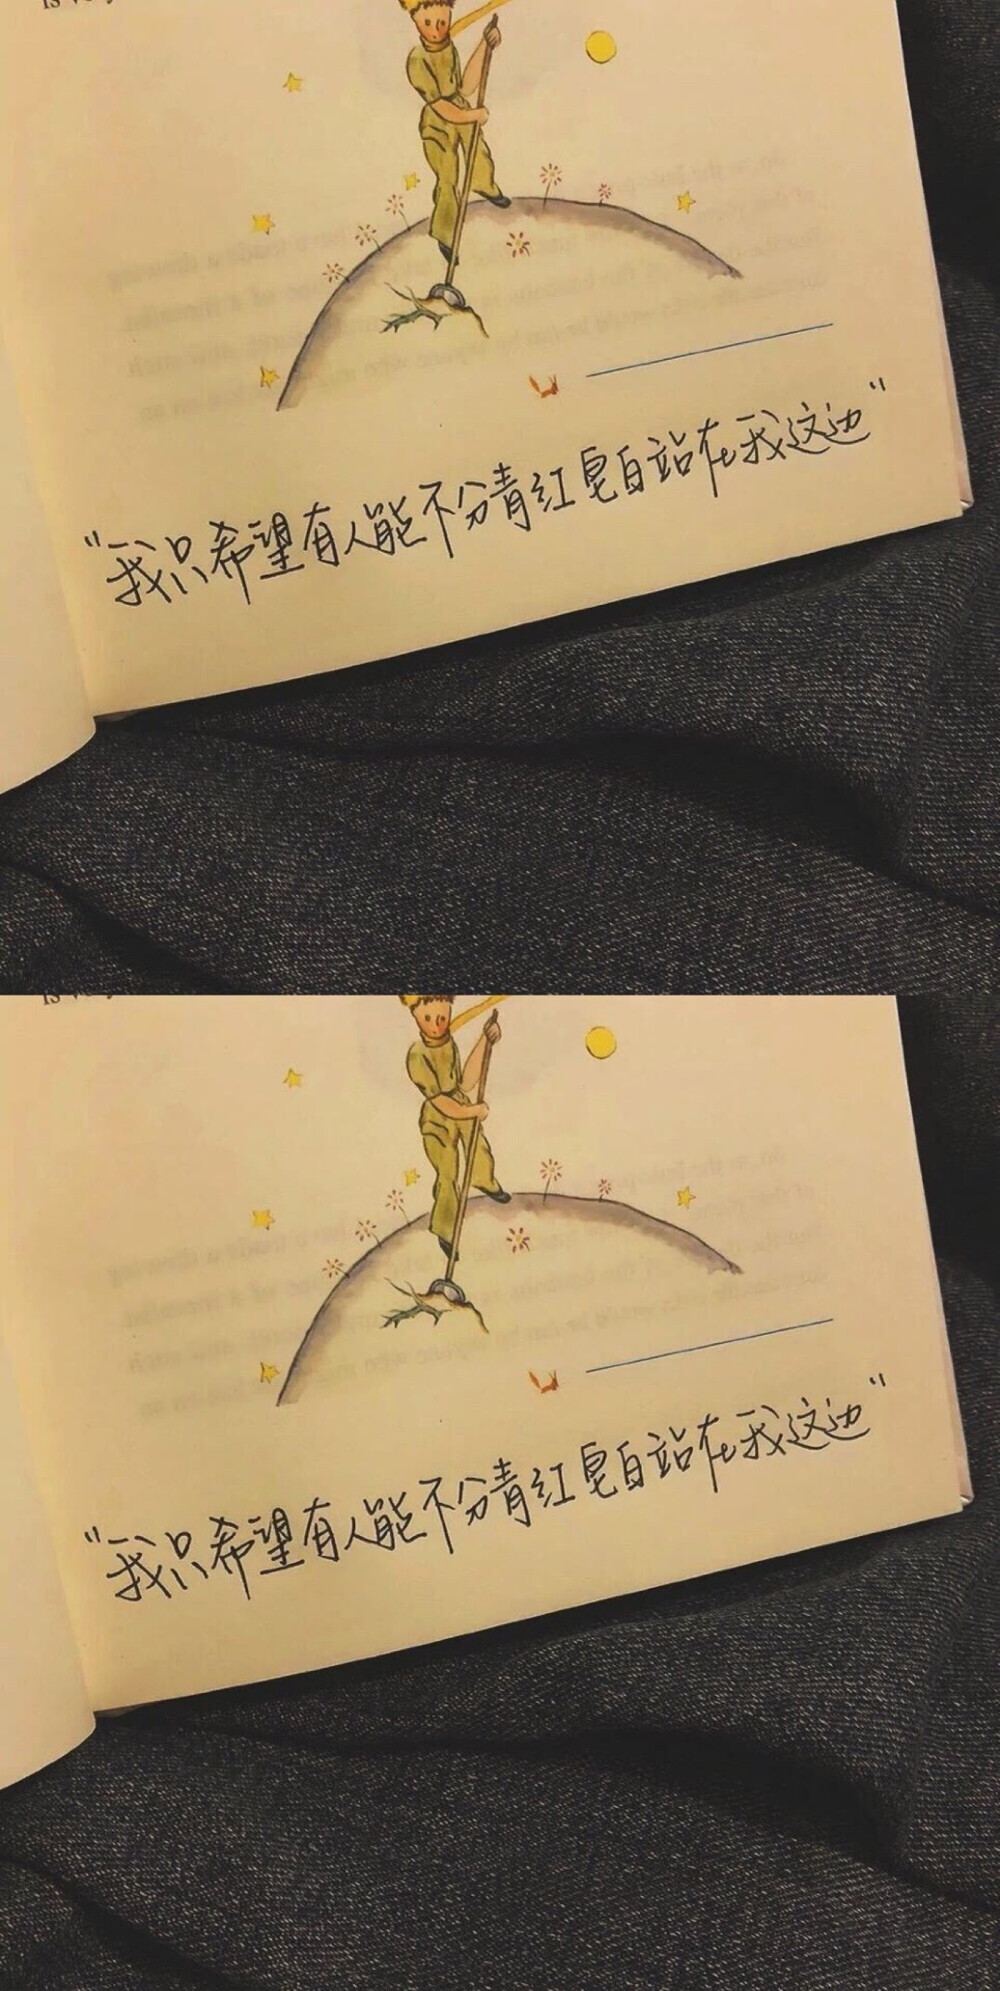 "我只希望有人能不分青红皂白站在我这边"
"我只希望有人能不分青红皂白站在我这边"